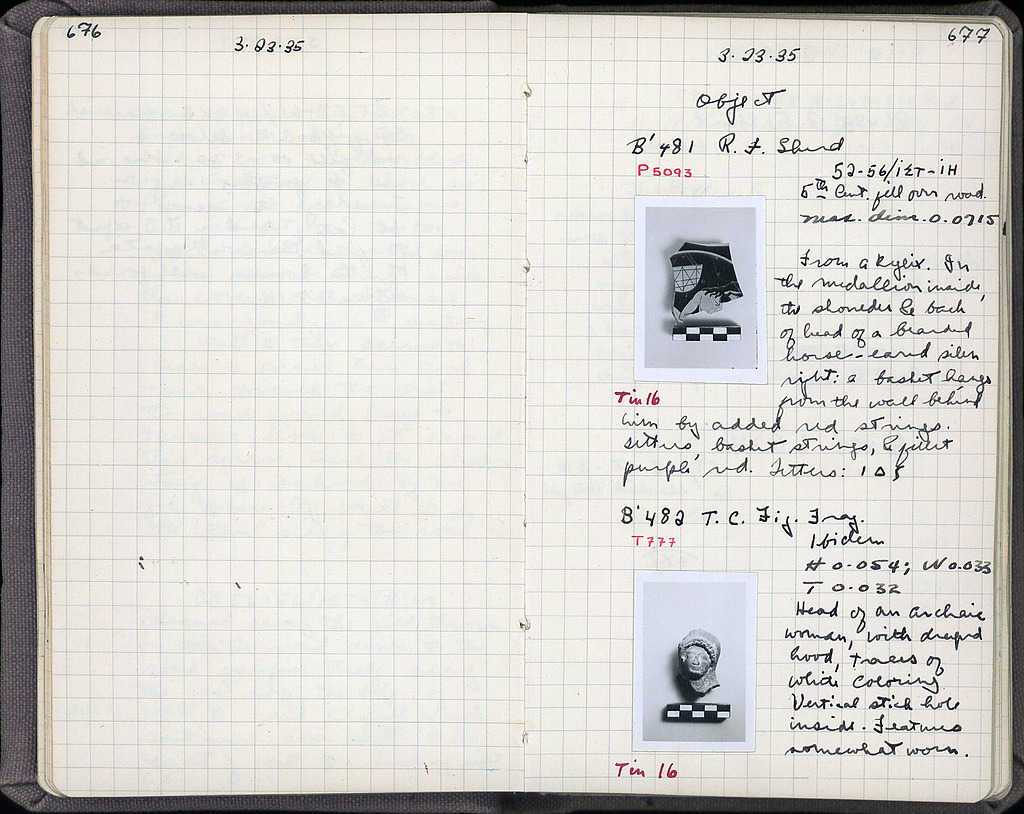 676
3·23·35
677
3·23·35
Object
B'481 R. F. Sherd
P5093
52-56/ΙΣΤ-ΙΗ
5th Cent. fill over road.
max. dim. 0.0715
From a kylix. In
the medallion inside,
the shoulder & back
of head of a bearded
horse-eared silen
right: a basket hangs
from the wall behind
Tin 16
him by added red strings.
letters, basket strings, & fillet
purple red. Letters:
B'482 T. C. Fig. Frag.
T777
Ibidem
H 0.054; W 0.033
T 0.032
Head of an archaic
woman, with draped
hood, traces of
white coloring
Vertical stick hole
inside. Features
somewhat worn.
Tin 16